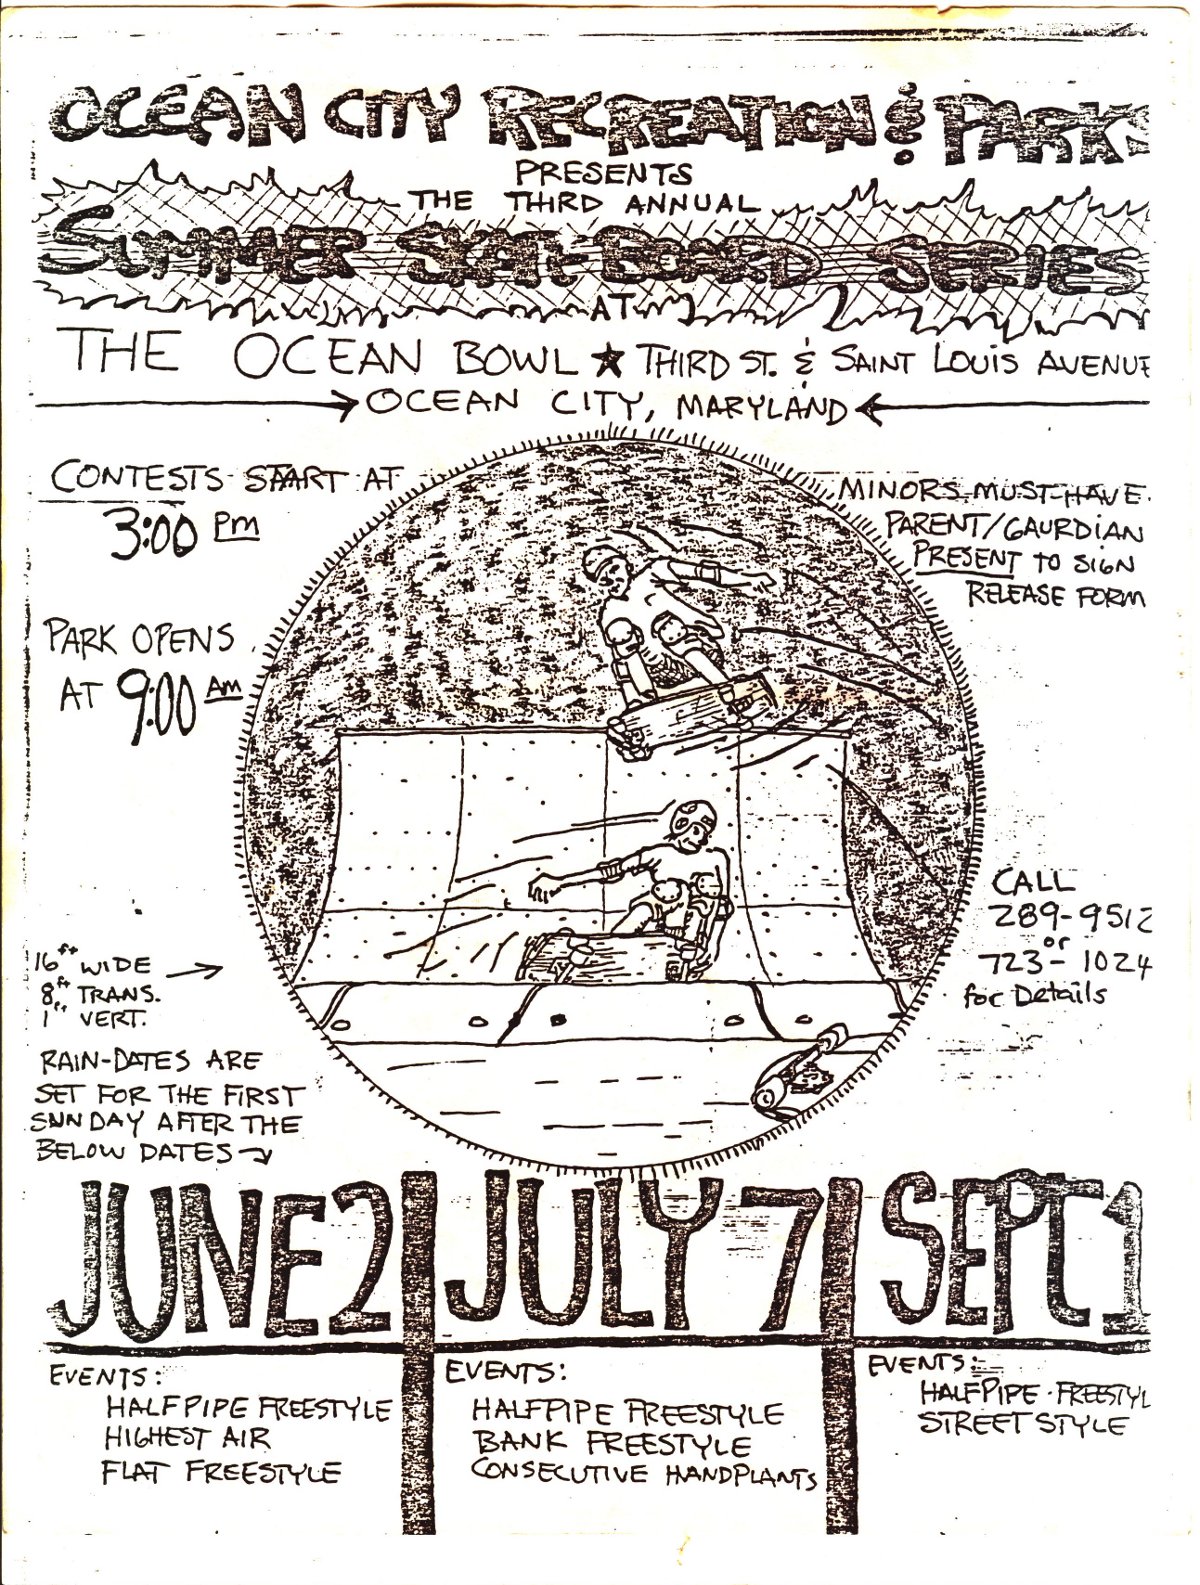 OCEAN CITY RECREATION & PARKS
PRESENTS
THE THIRD ANNUAL
SUMMER SKATEBOARD SERIES
AT
THE OCEAN BOWL ★ THIRD ST. & SAINT LOUIS AVENUE
OCEAN CITY, MARYLAND
CONTESTS START AT
3:00 PM
MINORS MUST HAVE
PARENT/GAURDIAN
PRESENT TO SIGN
RELEASE FORM
PARK OPENS
AT 9:00 AM
CALL
289-9512
or
723-1024
for Details
16ft WIDE
8ft TRANS.
1ft VERT.
RAIN-DATES ARE
SET FOR THE FIRST
SUNDAY AFTER THE
BELOW DATES
JUNE 2
EVENTS:
HALFPIPE FREESTYLE
HIGHEST AIR
FLAT FREESTYLE
JULY 7
EVENTS:
HALFPIPE FREESTYLE
BANK FREESTYLE
CONSECUTIVE HANDPLANTS
SEPT 1
EVENTS:
HALFPIPE FREESTYL
STREET STYLE